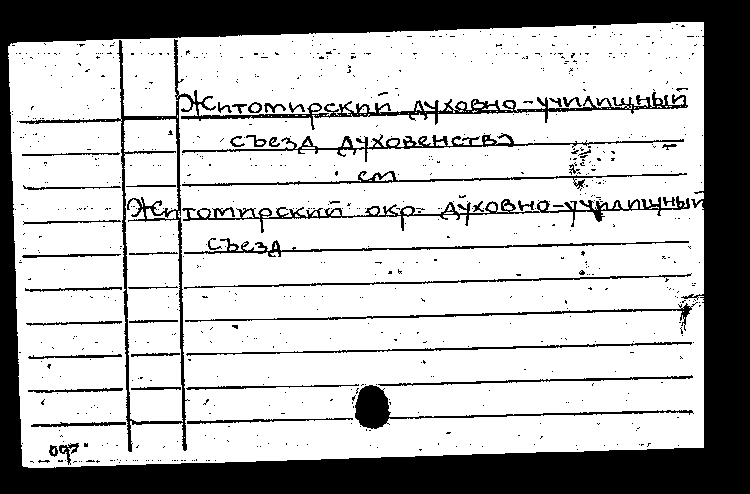 Житомирский духовно-училищный
съезд духовенства
см
Житомирский окр. духовно-училищный
съезд.